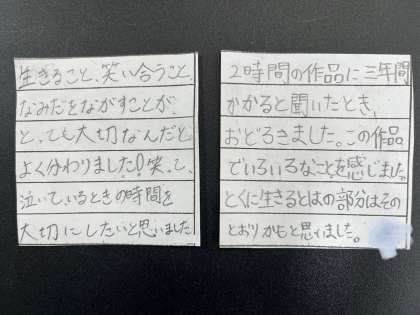 生きること、笑い合うこと、
なみだをながすことが、
とっても大切なんだと
よく分わりました!笑って、
泣いているときの時間を
大切にしたいと思いました
2時間の作品に三年間
かかると聞いたとき、
おどろきました。この作品
でいろいろなことを感じました。
とくに生きるとはの部分はその
とおりかもと思いました。